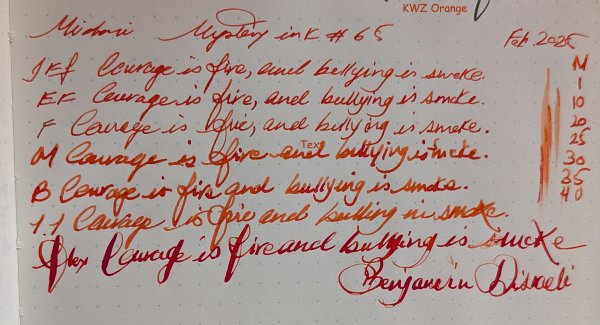 KWZ Orange
Midori Mystery ink # 65 Feb 2025
JEf Courage is fire, and bullying is smoke.
EF Courage is fire, and bullying is smoke.
F Courage is fire, and bullying is smoke.
M Courage is fire and bullying is smoke.
Text
B Courage is fire and bullying is smoke.
1.1 Courage is fire and bulling is smoke.
Flex Courage is fire and bullying is smoke
Benjamin Disraeli
M
1
10
20
25
30
35
40